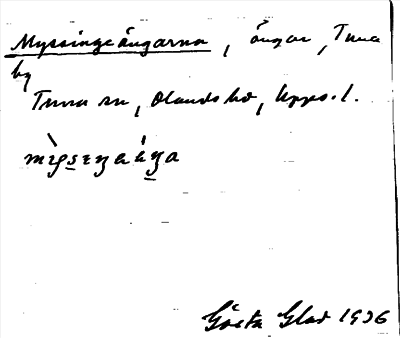 Myssingeängarna, ängar, Tuna
by
Tuna sn, Olands hd, Upps. l.
Gösta Glad 1936